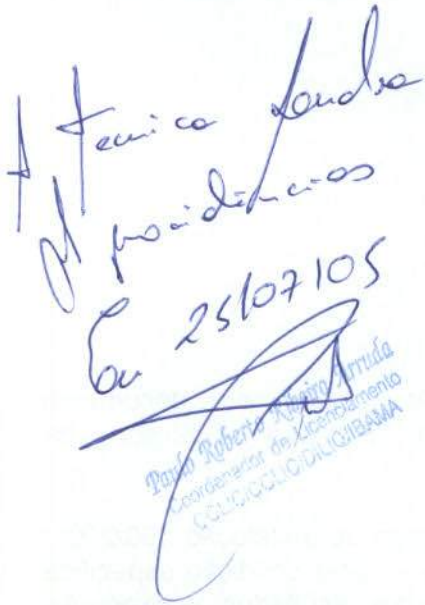 A Técnica Sandra
p/ providências
Em 25/07/05
Paulo Roberto Ribeiro Arruda
Coordenador de Licenciamento
CCLIC/DILIQ/IBAMA